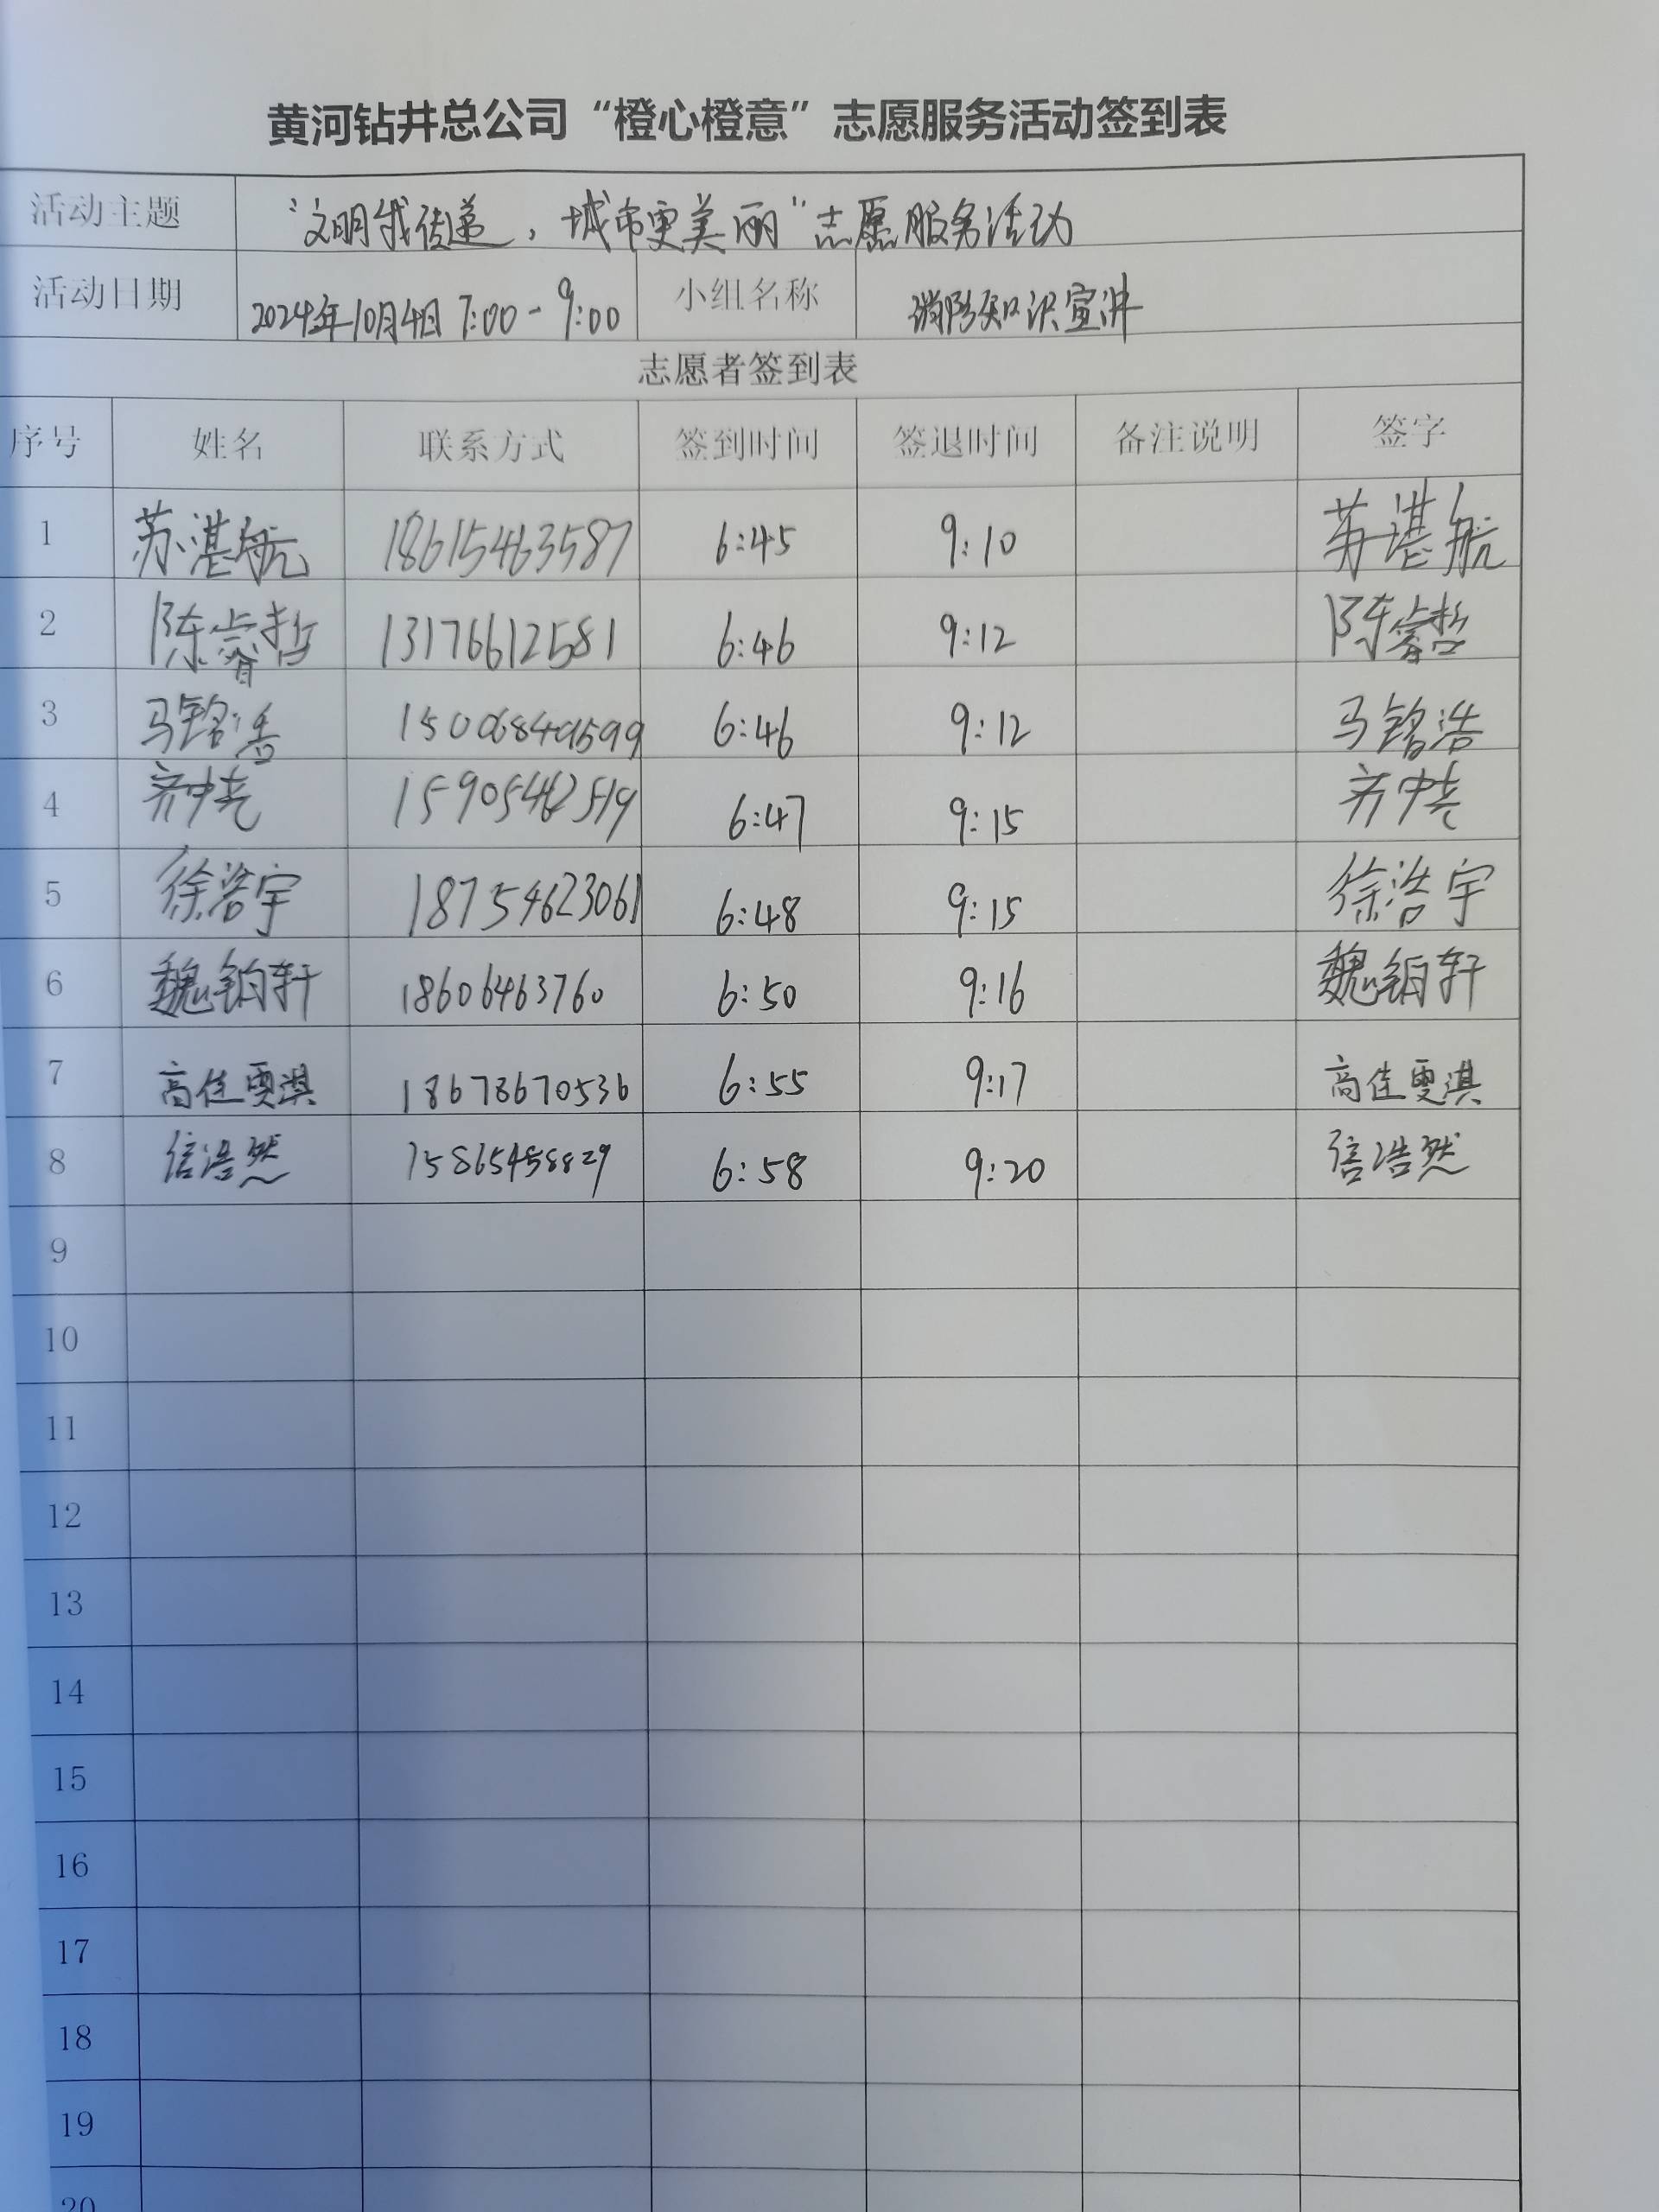 黄河钻井总公司“橙心橙意”志愿服务活动签到表
活动主题 “文明我传递，城市更美丽”志愿服务活动
活动日期 2024年10月4日 7:00-9:00 小组名称 消防知识宣讲
志愿者签到表
序号 姓名 联系方式 签到时间 签退时间 备注说明 签字
1 苏湛航 18615463587 6:45 9:10 苏湛航
2 陈睿哲 13176612581 6:46 9:12 陈睿哲
3 马铭浩 15006849599 6:46 9:12 马铭浩
4 齐中尧 15905462519 6:47 9:15 齐中尧
5 徐浩宇 18754623061 6:48 9:15 徐浩宇
6 魏铂轩 18606463760 6:50 9:16 魏铂轩
7 高佳雯淇 18678670536 6:55 9:17 高佳雯淇
8 信浩然 15865458829 6:58 9:20 信浩然
9
10
11
12
13
14
15
16
17
18
19
20